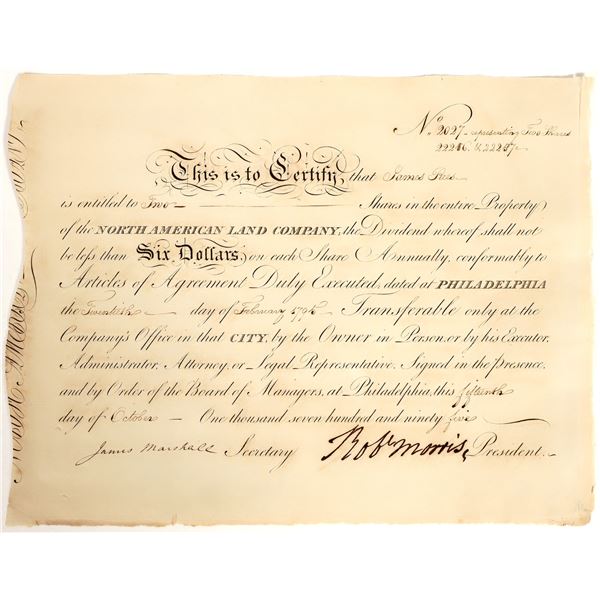 No. 2027 representing Two Shares
22216 & 22217
This is to Certify, that James Rees
is entitled to Two Shares in the entire Property
of the NORTH AMERICAN LAND COMPANY, the Dividend whereof shall not
be less than Six Dollars, on each Share Annually, conformably to
Articles of Agreement Duly Executed, dated at PHILADELPHIA
the Twentieth day of February 1795 Transferable only at the
Company's Office in that CITY, by the Owner in Person, or by his Executor,
Administrator, Attorney, or Legal Representative. Signed in the presence,
and by Order of the Board of Managers, at Philadelphia, this fifteenth
day of October — One thousand seven hundred and ninety five
James Marshall Secretary Robt Morris, President.